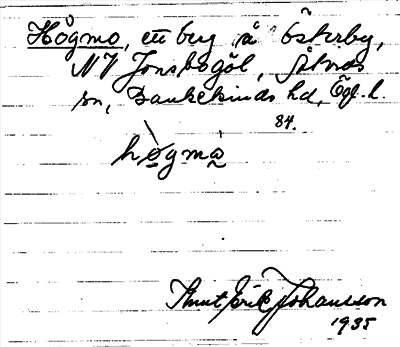 Högmo, ett berg på Österby,
NV Jonsbogöl, Åtvids
sn, Bankekinds hd, Ög. l.
84.
högma
Knut Erik Johansson
1935